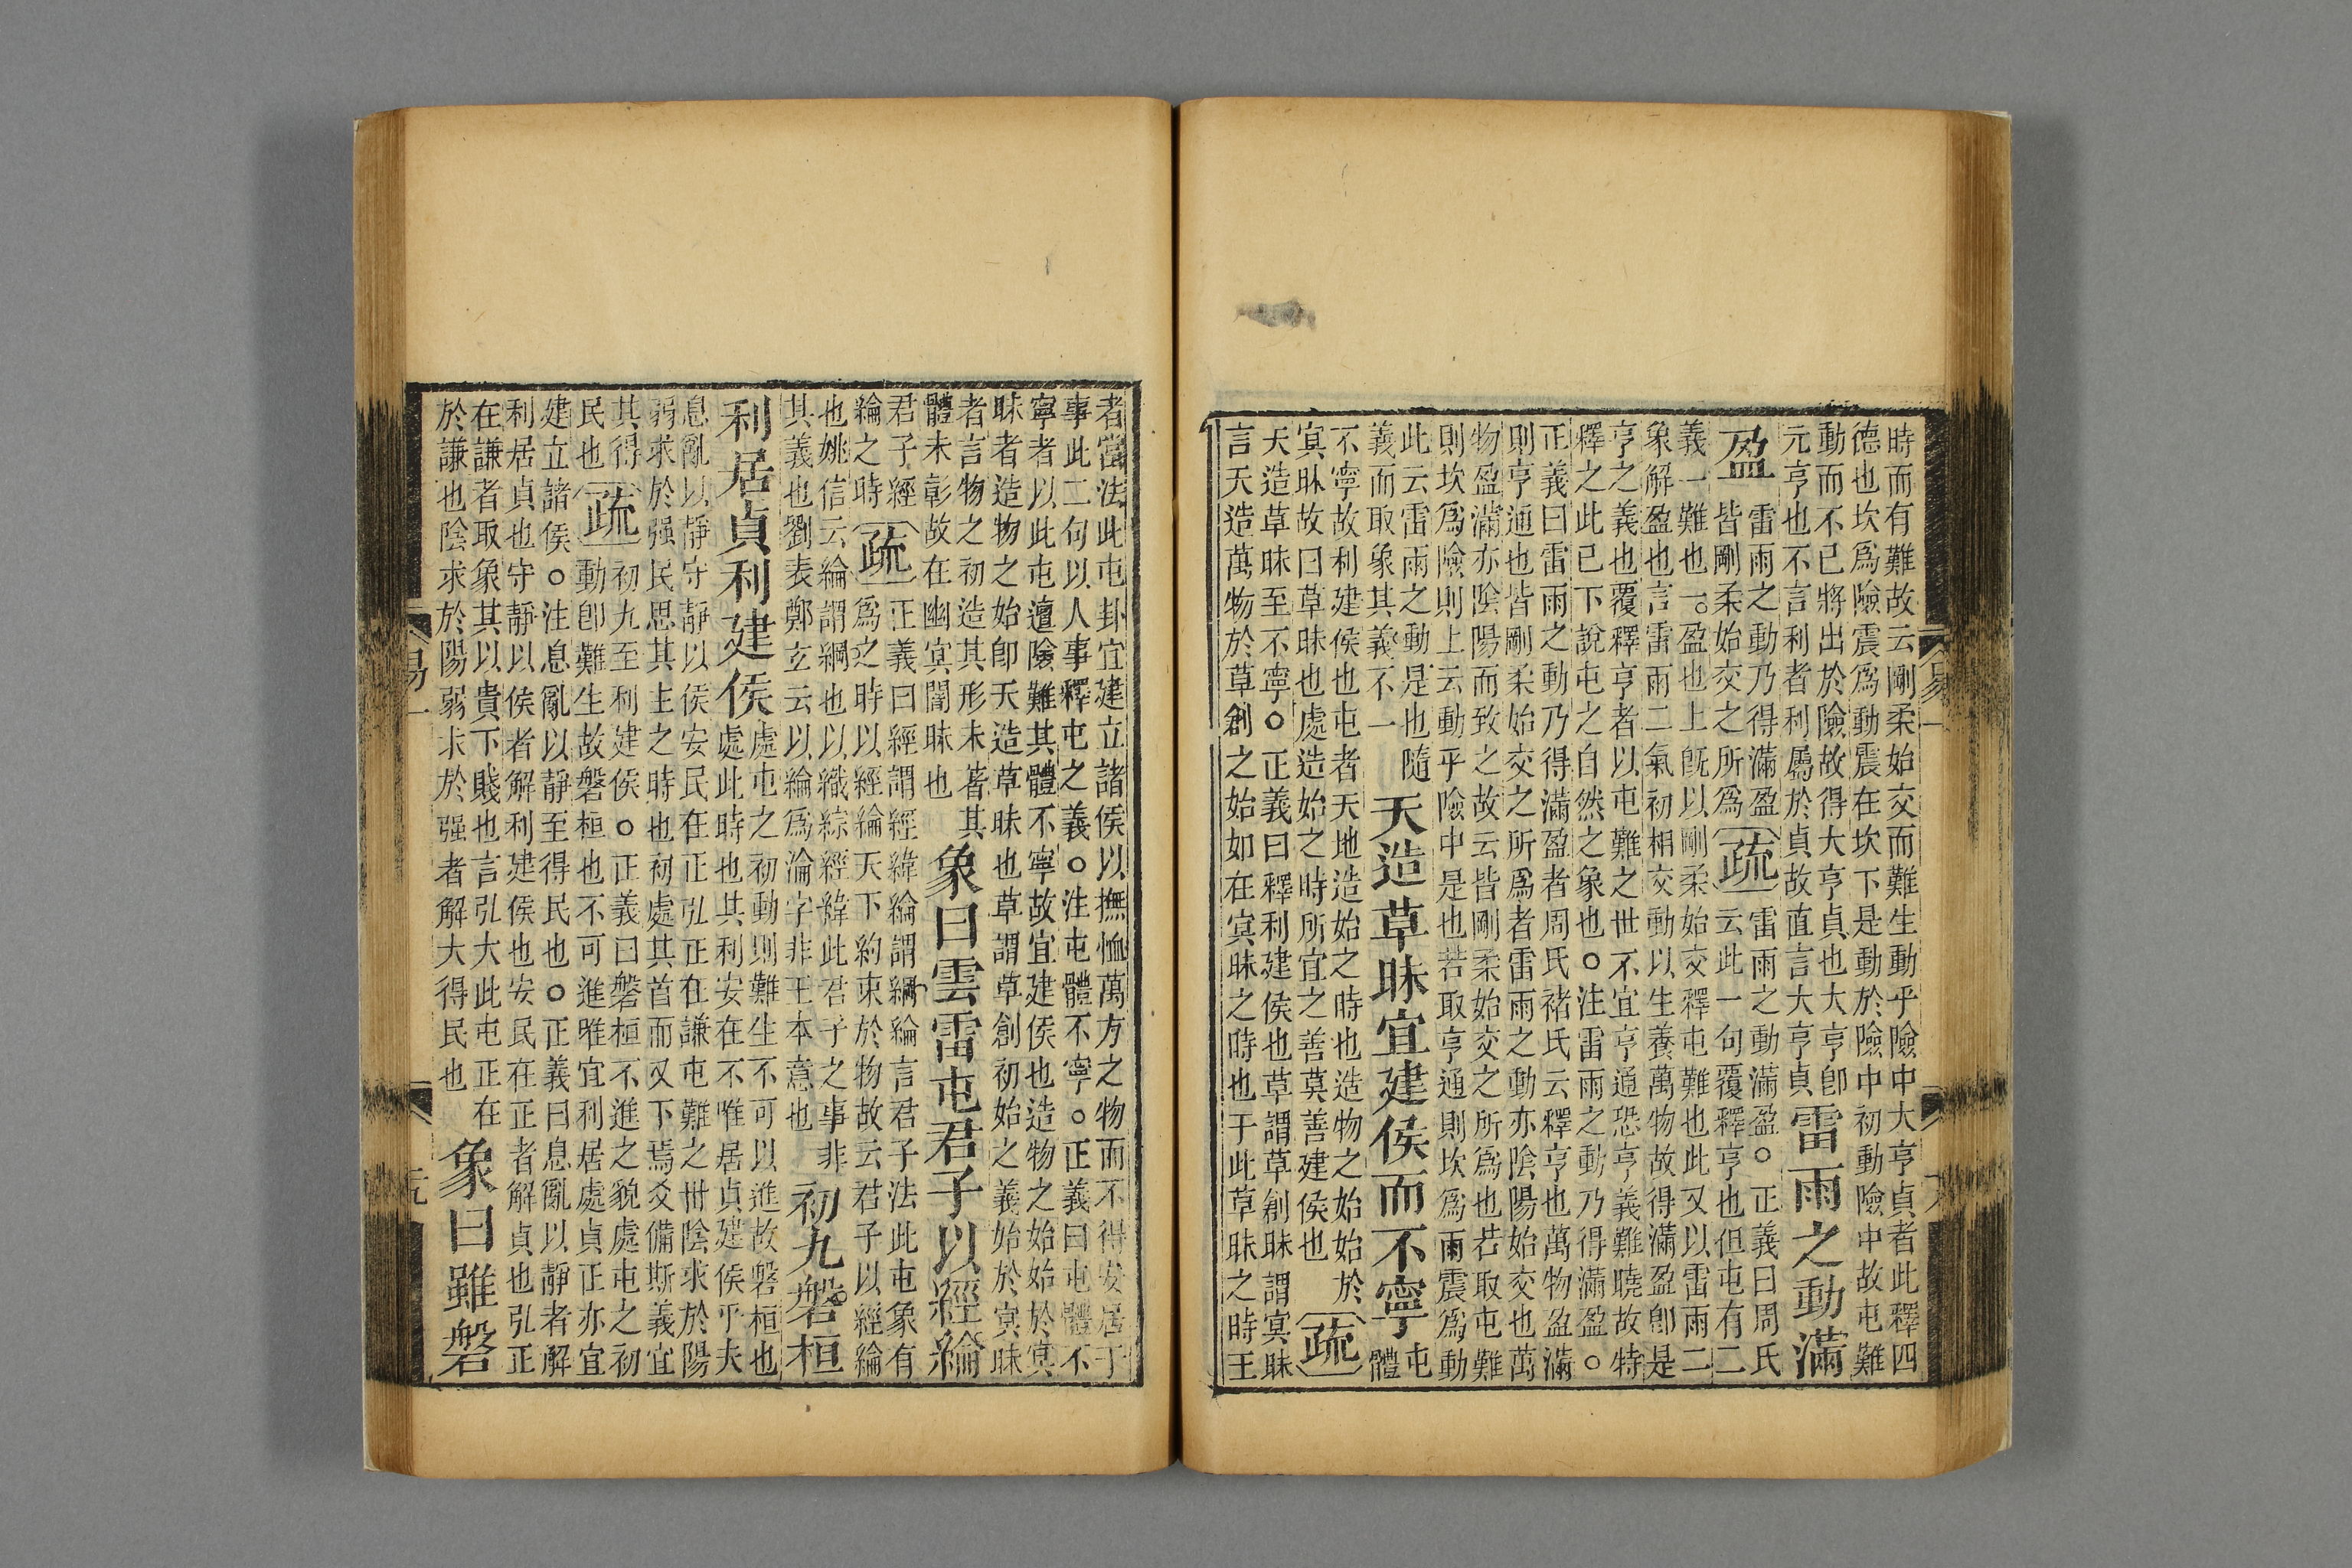 時而有難故云剛柔始交而難生動乎險中大亨貞者此釋四
德也坎爲險震爲動震在坎下是動於險中初動險中故屯難
動而不已將出於險故得大亨貞也大亨卽
元亨也不言利者利屬於貞故直言大亨貞
雷雨之動滿
盈
雷雨之動乃得滿盈
皆剛柔始交之所爲
疏
雷雨之動滿盈○正義曰周氏
云此一句覆釋亨也但屯有二
義一難也一盈也上旣以剛柔始交釋屯難也此又以雷雨二
象解盈也言雷雨二氣初相交動以生養萬物故得滿盈卽是
亨之義也覆釋亨者以屯難之世不宜亨通恐亨義難曉故特
釋之此已下說屯之自然之象也○注雷雨之動乃得滿盈○
正義曰雷雨之動乃得滿盈者周氏褚氏云釋亨也萬物盈滿
則亨通也皆剛柔始交之所爲者雷雨之動亦陰陽始交也萬
物盈滿亦陰陽而致之故云皆剛柔始交之所爲也若取屯難
則坎爲險則上云動乎險中是也若取亨通則坎爲雨震爲動
此云雷雨之動是也隨
義而取象其義不一
天造草昧宜建侯而不寧
屯
體
不寧故利建侯也屯者天地造始之時也造物之始始於
冥昧故曰草昧也處造始之時所宜之善莫善建侯也
疏
天造草昧至不寧○正義曰釋利建侯也草謂草創昧謂冥昧
言天造萬物於草創之始如在冥昧之時也于此草昧之時王
者當法此屯卦宜建立諸侯以撫恤萬方之物而不得安居于
事此二句以人事釋屯之義○注屯體不寧○正義曰屯體不
寧者以此屯邅險難其體不寧故宜建侯也造物之始始於冥
昧者造物之始卽天造草昧也草謂草創初始之義始於冥昧
者言物之初造其形未著其
體未彰故在幽冥闇昧也
象曰雲雷屯君子以經綸
君子經
綸之時
疏
正義曰經謂經緯綸謂綱綸言君子法此屯象有
爲之時以經綸天下約束於物故云君子以經綸
也姚信云綸謂綱也以織綜經緯此君子之事非
其義也劉表鄭玄云以綸爲淪字非王本意也
初九磐桓
利居貞利建侯
處屯之初動則難生不可以進故磐桓也
處此時也其利安在不唯居貞建侯乎夫
息亂以靜守靜以侯安民在正弘正在謙屯難之世陰求於陽
弱求於强民思其主之時也初處其首而又下焉爻備斯義宜
其得
民也
疏
初九至利建侯○正義曰磐桓不進之貌處屯之初
動卽難生故磐桓也不可進唯宜利居處貞正亦宜
建立諸侯○注息亂以靜至得民也○正義曰息亂以靜者解
利居貞也守靜以侯者解利建侯也安民在正者解貞也弘正
在謙者取象其以貴下賤也言弘大此屯正在
於謙也陰求於陽弱求於强者解大得民也
象曰雖磐